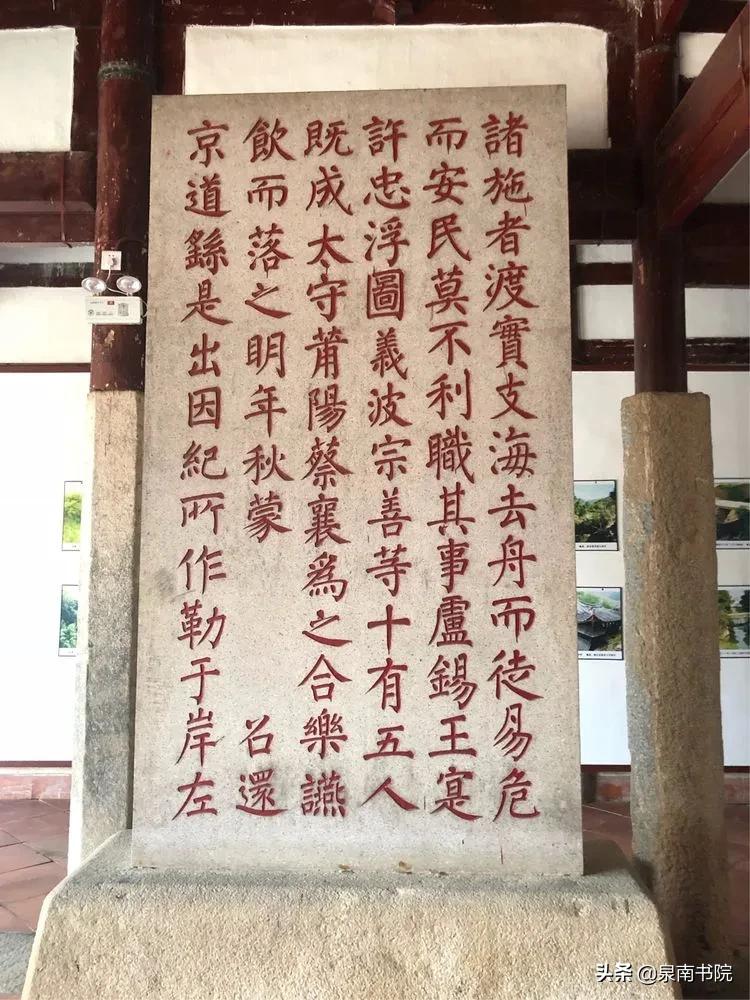 諸施者渡實支海去舟而徒易危
而安民莫不利職其事盧錫王寔
許忠浮圖義波宗善等十有五人
既成太守莆陽蔡襄爲之合樂讌
飲而落之明年秋蒙 召還
京道繇是出因紀所作勒于岸左
头条 @泉南书院